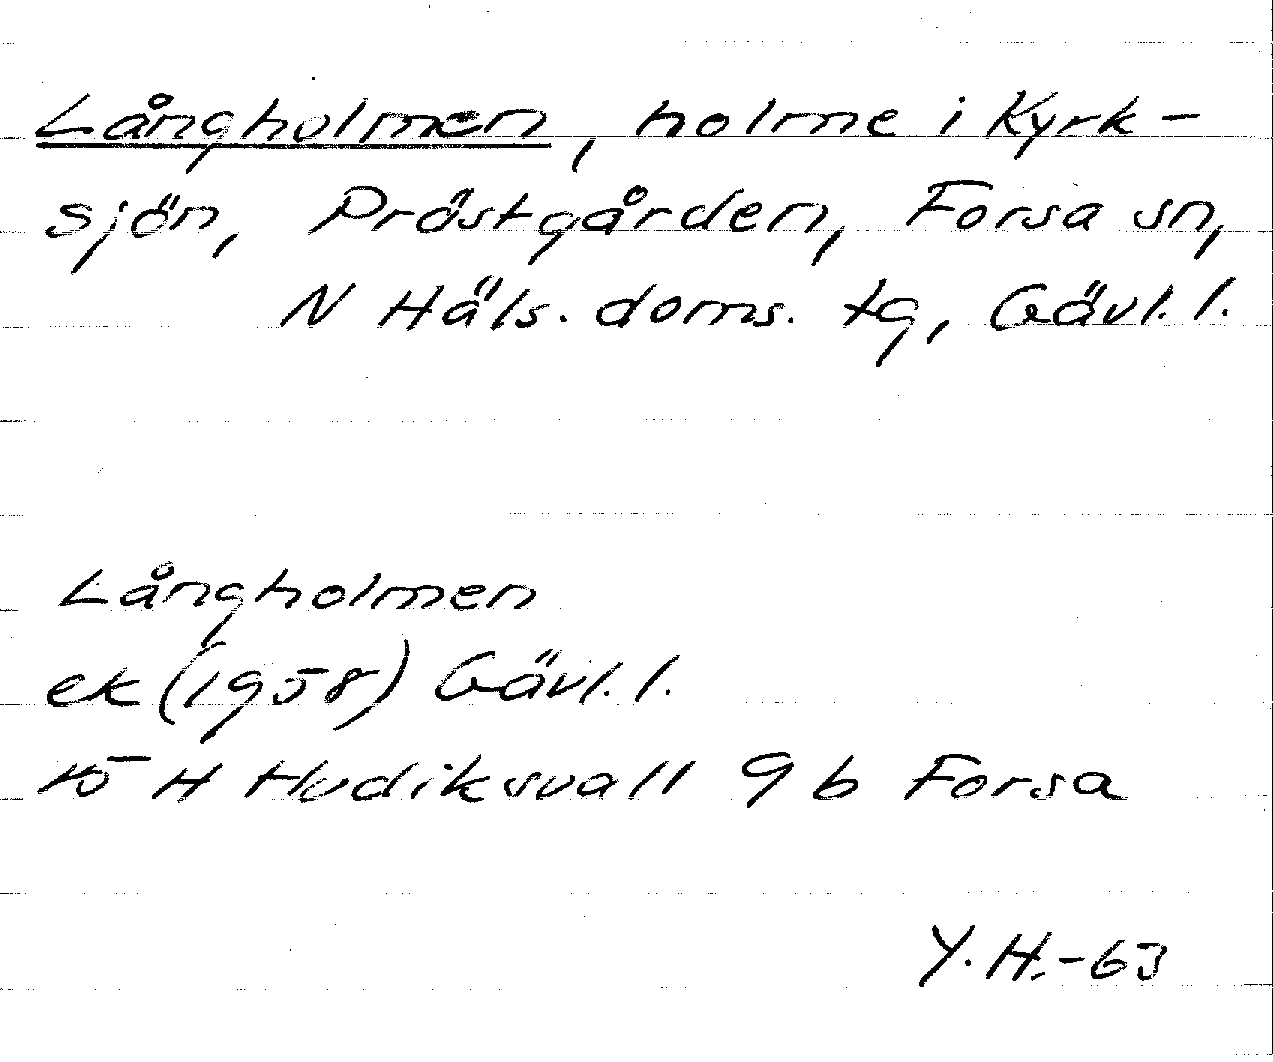 Långholmen, holme i Kyrk-
sjön, Prästgården, Forsa sn,
N Häls. doms. tg, Gävl. l.
Långholmen
ek (1958) Gävl. l.
15 H Hudiksvall 9 b Forsa
Y. H. -63